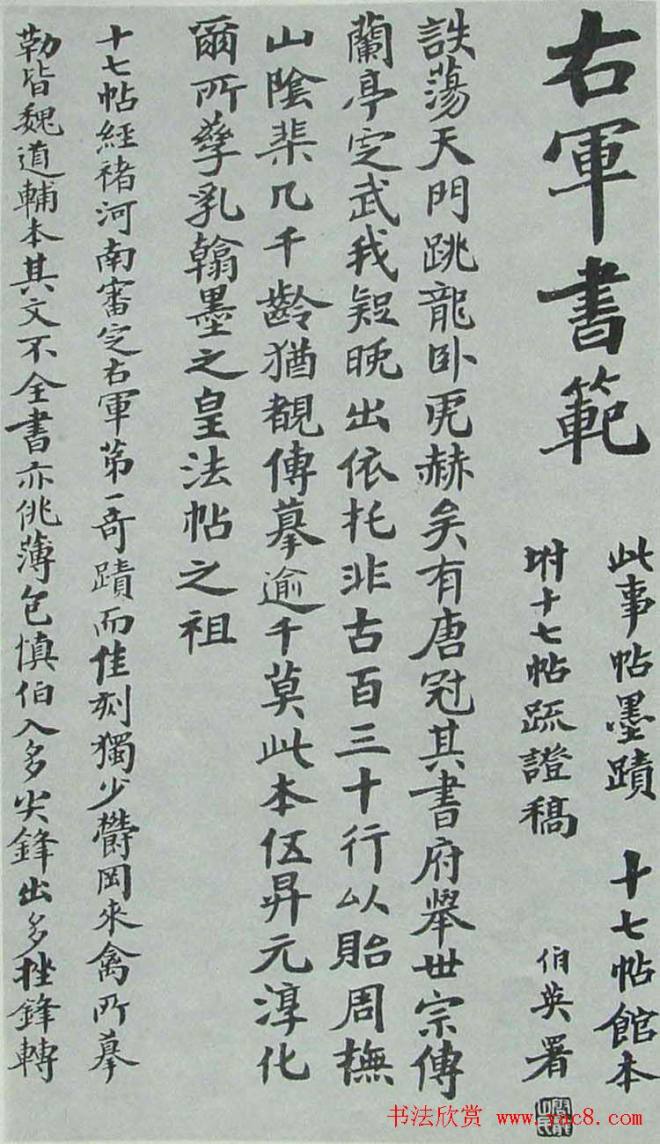 右軍書範
此事帖墨蹟 十七帖館本
坿十七帖疏證稿 伯英署
詄蕩天門跳龍卧虎赫矣有唐冠其書府舉世宗傳
蘭亭定武我疑晚出依托非古百三十行以貽周撫
山陰棐几千齡猶覩傳摹逾千莫此本伍昇元淳化
爾所孳乳翰墨之皇法帖之祖
十七帖經褚河南審定右軍第一奇蹟而佳刻獨少欎岡來禽所摹
勒皆魏道輔本其文不全書亦佻薄包慎伯入多尖鋒出多挫鋒轉
书法欣赏 www.yac8.com